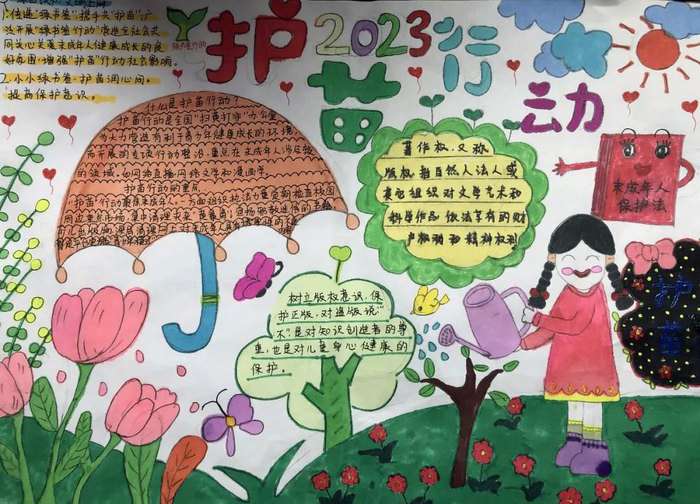 1.传递"绿书签",携手共"护苗",广
泛开展"绿书签行动"营造全社会共
同关心关爱未成年人健康成长的良
好氛围,增强"护苗"行动社会影响。
2.小小绿书签,护苗润心间。
提高保护意识。
绿书签行动
护苗
2023
行动
什么是护苗行动?
护苗行动是全国"扫黄打非"办公室
为大力营造有利于青少年健康成长的环境
而开展的专项行动整治,重点在未成年人涉足较多
的流域,如网络直播,网络文学和漫画等
护苗行动的重点
著作权,又称
版权,指自然人法人或
其它组织对文学艺术和
科学作品依法享有的财
产权利和精神权利
未成年人
保护法
树立版权意识,保
护正版,对盗版说"
不"是对知识创造者的尊
重,也是对儿童身心健康的
保护。
护
苗